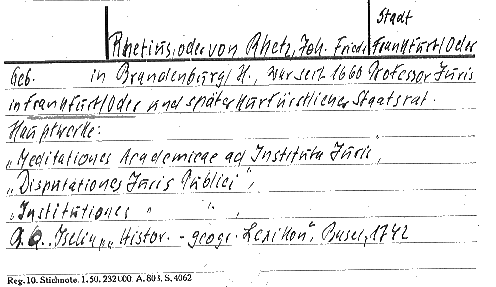 Stadt
Rhetius, oder von Rhetz, Joh. Friedr. Frankfurt/Oder
Geb. in Brandenburg/H., war seit 1660 Professor Juris
in Frankfurt/Oder und später Kurfürstlicher Staatsrat.
Hauptwerke:
„Meditationes Academicae ad Instituta Juris,
„Disputationes Juris Publici",
„Institutiones " " ,
Iselin „Histor. - geogr. Lexikon", Basel, 1742
Reg. 10. Stichnote. 1. 50. 232000. A. 803. S. 4062